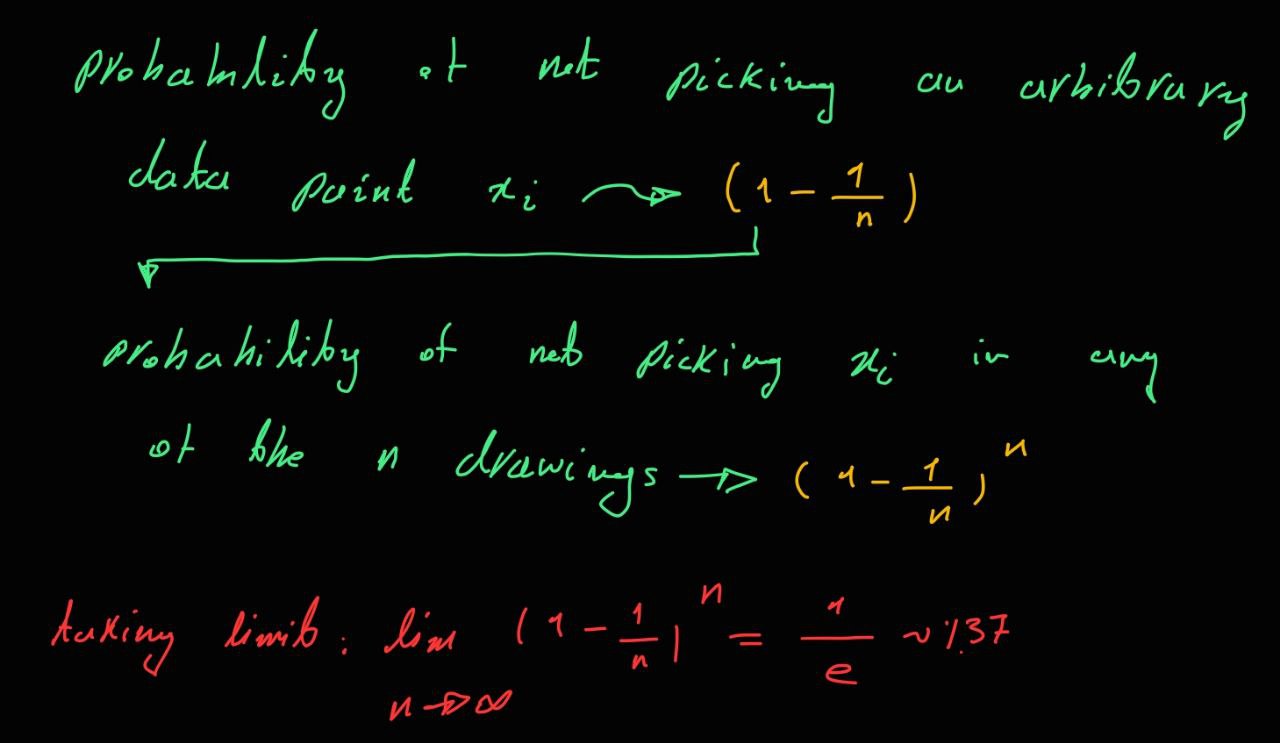 probability of not picking an arbitrary
data point xᵢ → (1 - 1/n)
probability of not picking xᵢ in any
of the n drawings → (1 - 1/n)ⁿ
taking limit: lim n→∞ (1 - 1/n)ⁿ = 1/e ~ %37